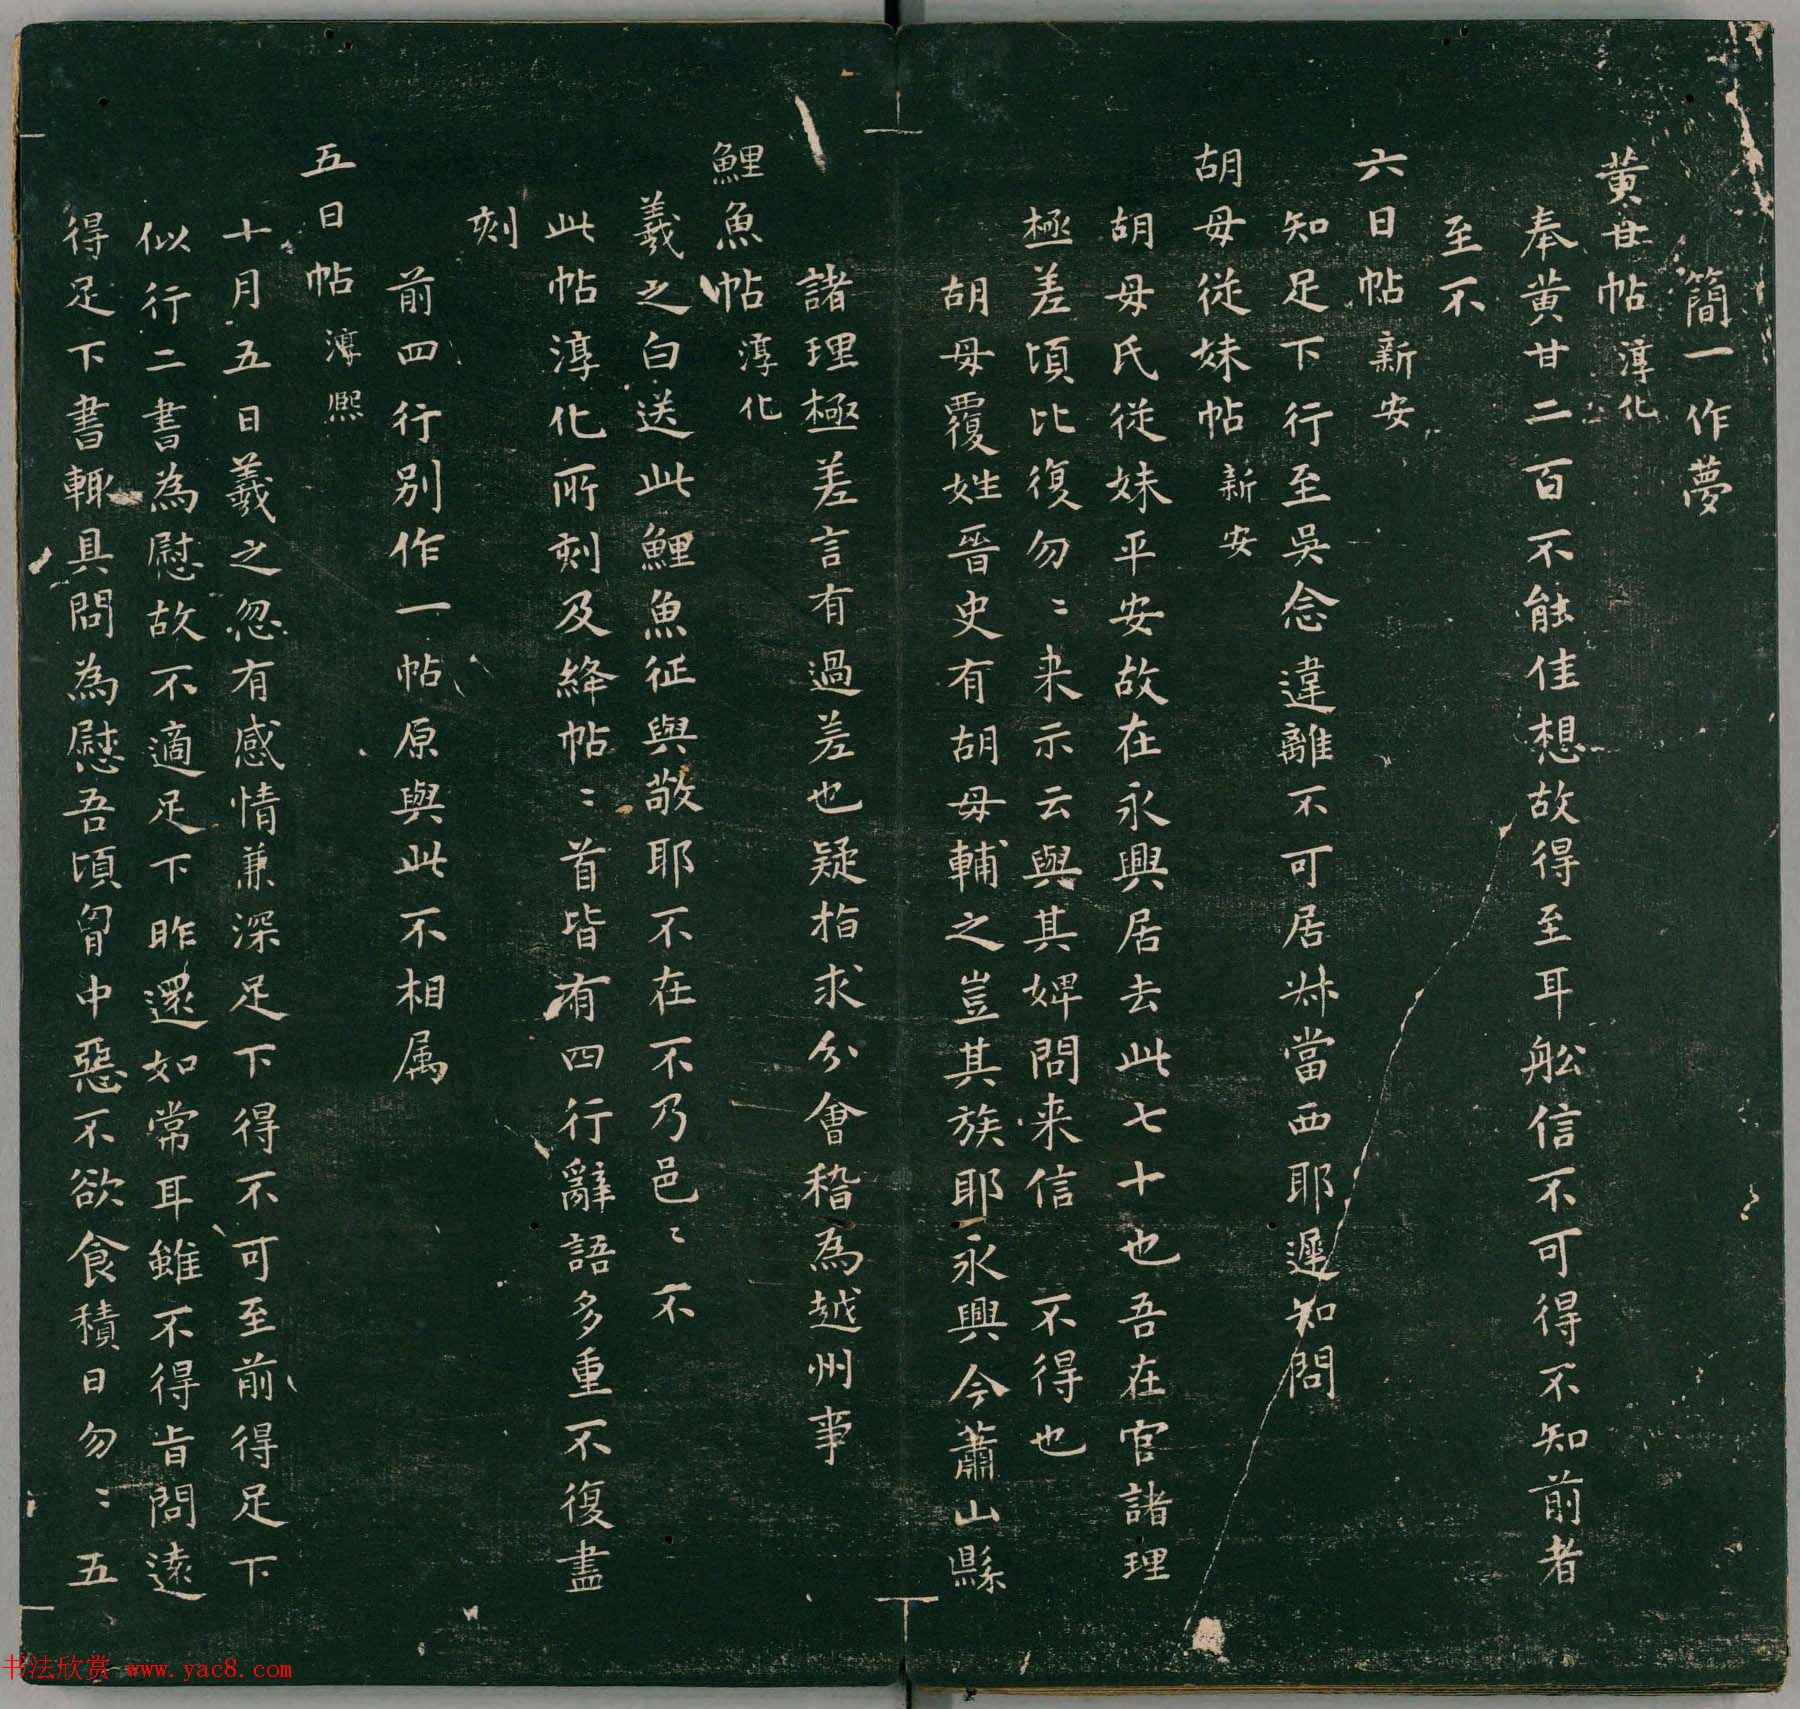 簡一作夢
黄甘帖 淳化
奉黄甘二百不能佳想故得至耳舩信不可得不知前者
至不
六日帖 新安
知足下行至吳念違離不可居叔當西耶遲知問
胡母從妹帖 新安
胡母氏從妹平安故在永興居去此七十也吾在官諸理
極差頃比復勿〻来示云與其婢問来信 不得也
胡母覆姓晉史有胡母輔之豈其族耶永興今蕭山縣
諸理極差言有過差也疑指求分會稽為越州事
鯉魚帖 淳化
羲之白送此鯉魚征與敬耶不在不乃邑〻不
此帖淳化所刻及絳帖〻首皆有四行辭語多重不復盡
刻
前四行别作一帖原與此不相属
五日帖 淳熙
十月五日羲之忽有感情兼深足下得不可至前得足下
似行二書為慰故不適足下昨還如常耳雖不得旨問遠
得足下書輒具問為慰吾頃胷中惡不欲食積日勿〻五
书法欣赏 www.yac8.com